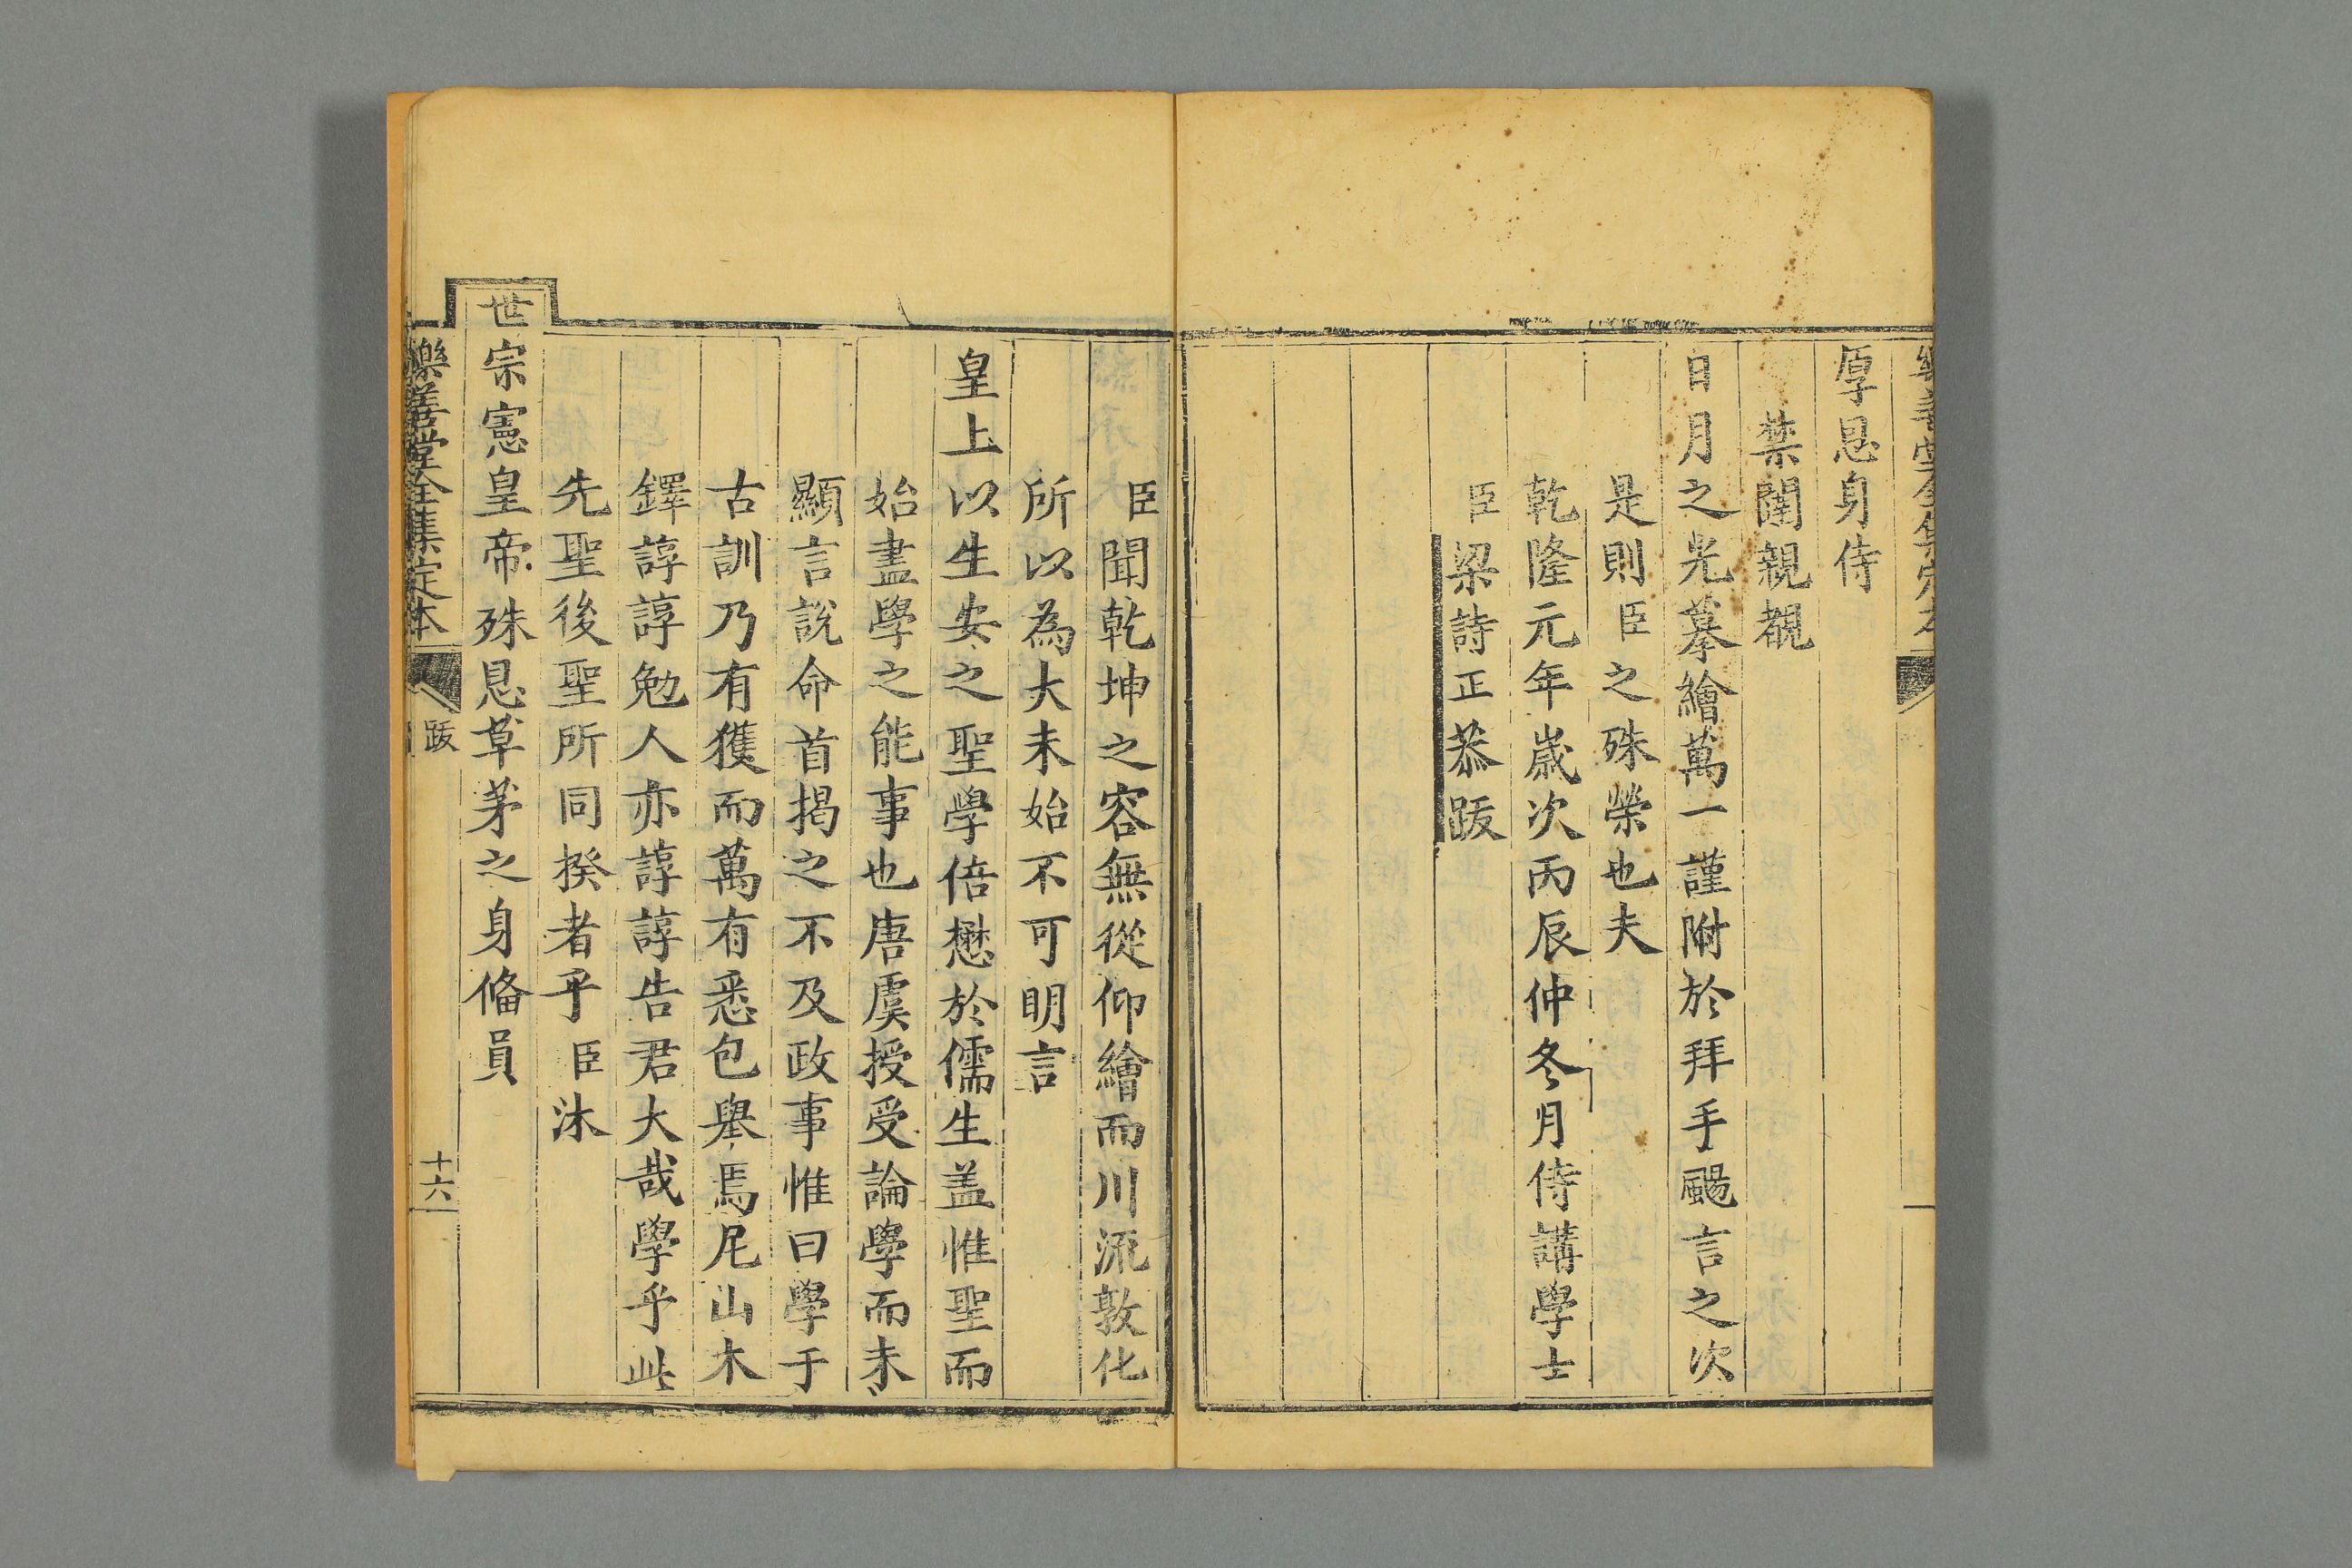 樂善堂全集定本
厚恩身侍
禁闥親覩
日月之光摹繪萬一謹附於拜手颺言之次
是則臣之殊榮也夫
乾隆元年歲次丙辰仲冬月侍講學士
臣梁詩正恭跋
臣聞乾坤之容無從仰繪而川流敦化
所以為大未始不可明言
皇上以生安之聖學倍懋於儒生盖惟聖而
始盡學之能事也唐虞授受論學而未
顯言說命首揭之不及政事惟曰學于
古訓乃有獲而萬有悉包舉焉尼山木
鐸諄諄勉人亦諄諄告君大哉學乎此
先聖後聖所同揆者乎臣沐
世宗憲皇帝殊恩草茅之身俻員
樂善堂全集定本
跋
十六